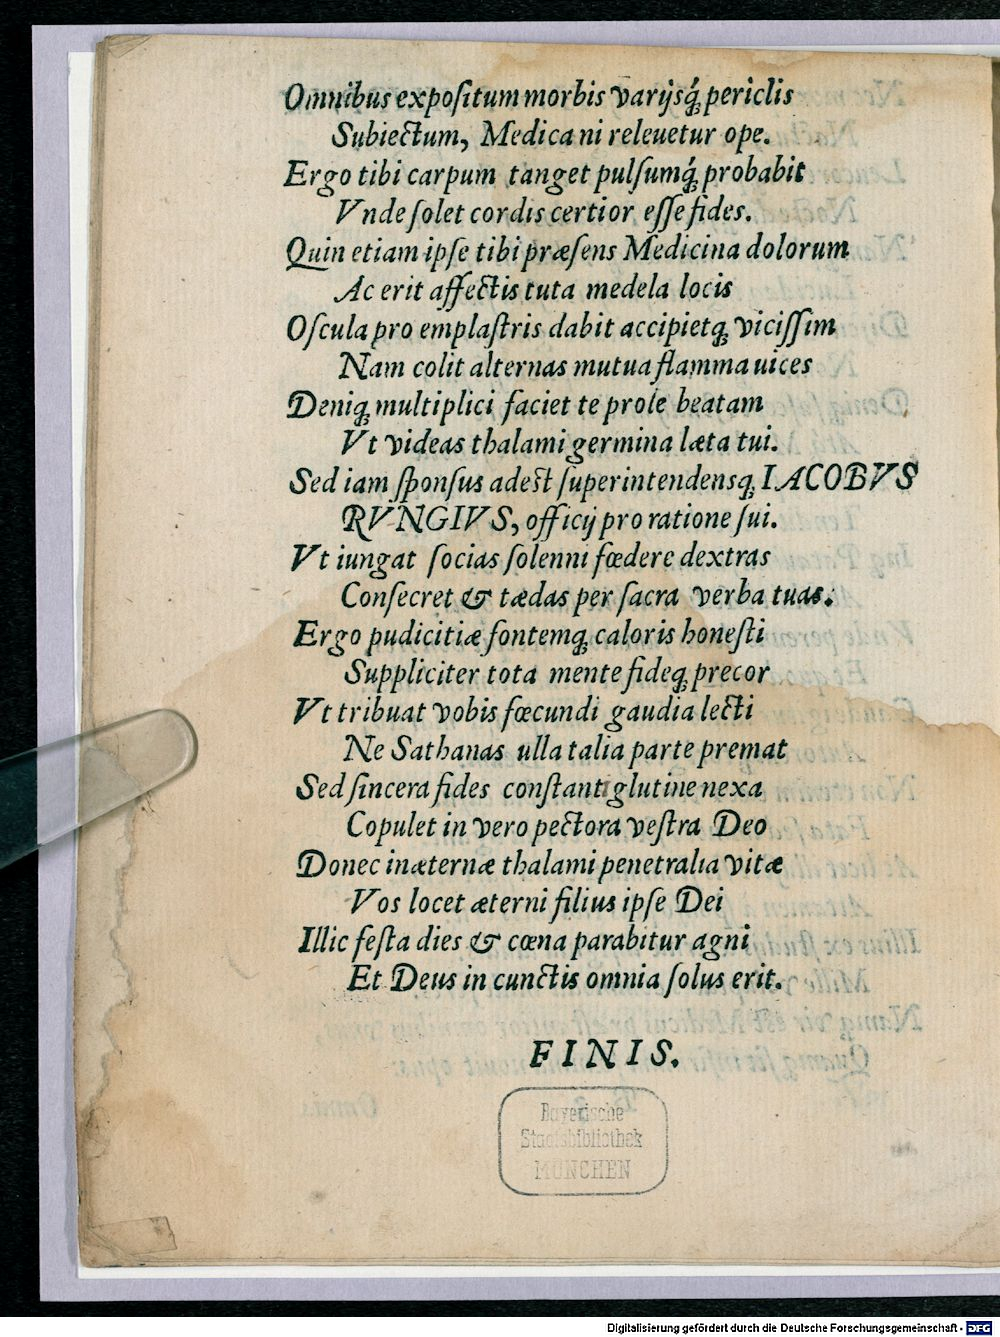 Omnibus expoſitum morbis varijsq́ꝫ periclis
Subiectum, Medica ni releuetur ope.
Ergo tibi carpum tanget pulſumq́ꝫ probabit
Vnde ſolet cordis certior eſſe fides.
Quin etiam ipſe tibi præſens Medicina dolorum
Ac erit affectis tuta medela locis
Oſcula pro emplaſtris dabit accipietqꝫ viciſſim
Nam colit alternas mutua flamma uices
Deniqꝫ multiplici faciet te prole beatam
Vt videas thalami germina læta tui.
Sed iam ſponſus adest ſuperintendensqꝫ IACOBVS
RVNGIVS, officij pro ratione ſui.
Vt iungat ſocias ſolenni fœdere dextras
Conſecret & tædas per ſacra verba tuas.
Ergo pudicitiæ fontemqꝫ caloris honeſti
Suppliciter tota mente fideqꝫ precor
Vt tribuat vobis fœcundi gaudia lecti
Ne Sathanas ulla talia parte premat
Sed ſincera fides conſtanti glutine nexa
Copulet in vero pectora veſtra Deo
Donec in æternæ thalami penetralia vitæ
Vos locet æterni filius ipſe Dei
Illic feſta dies & cœna parabitur agni
Et Deus in cunctis omnia ſolus erit.
FINIS.
Bayerische
Staatsbibliothek
MÜNCHEN
Digitalisierung gefördert durch die Deutsche Forschungsgemeinschaft - DFG